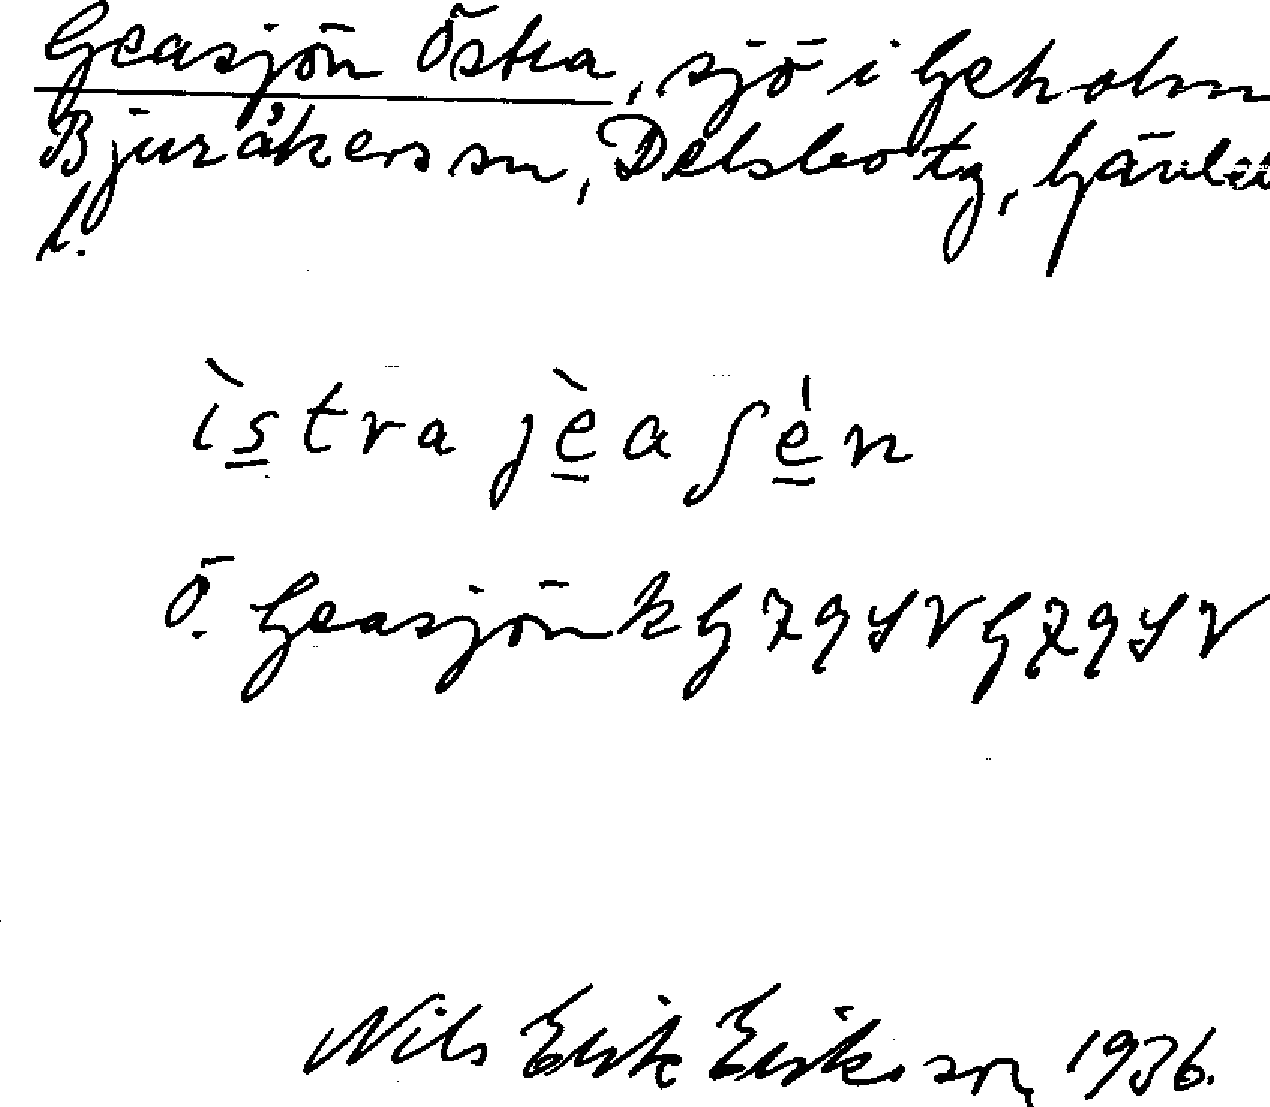 Geasjön Östra, sjö i Geholm
Bjuråkers sn, Delsbo tg, Gävle
l.
ìs̲tra jè̲aʃé̲n
Ö. Geasjön k G 7 9 S V G 7 9 S V
Nils Erik Eriksson 1936.